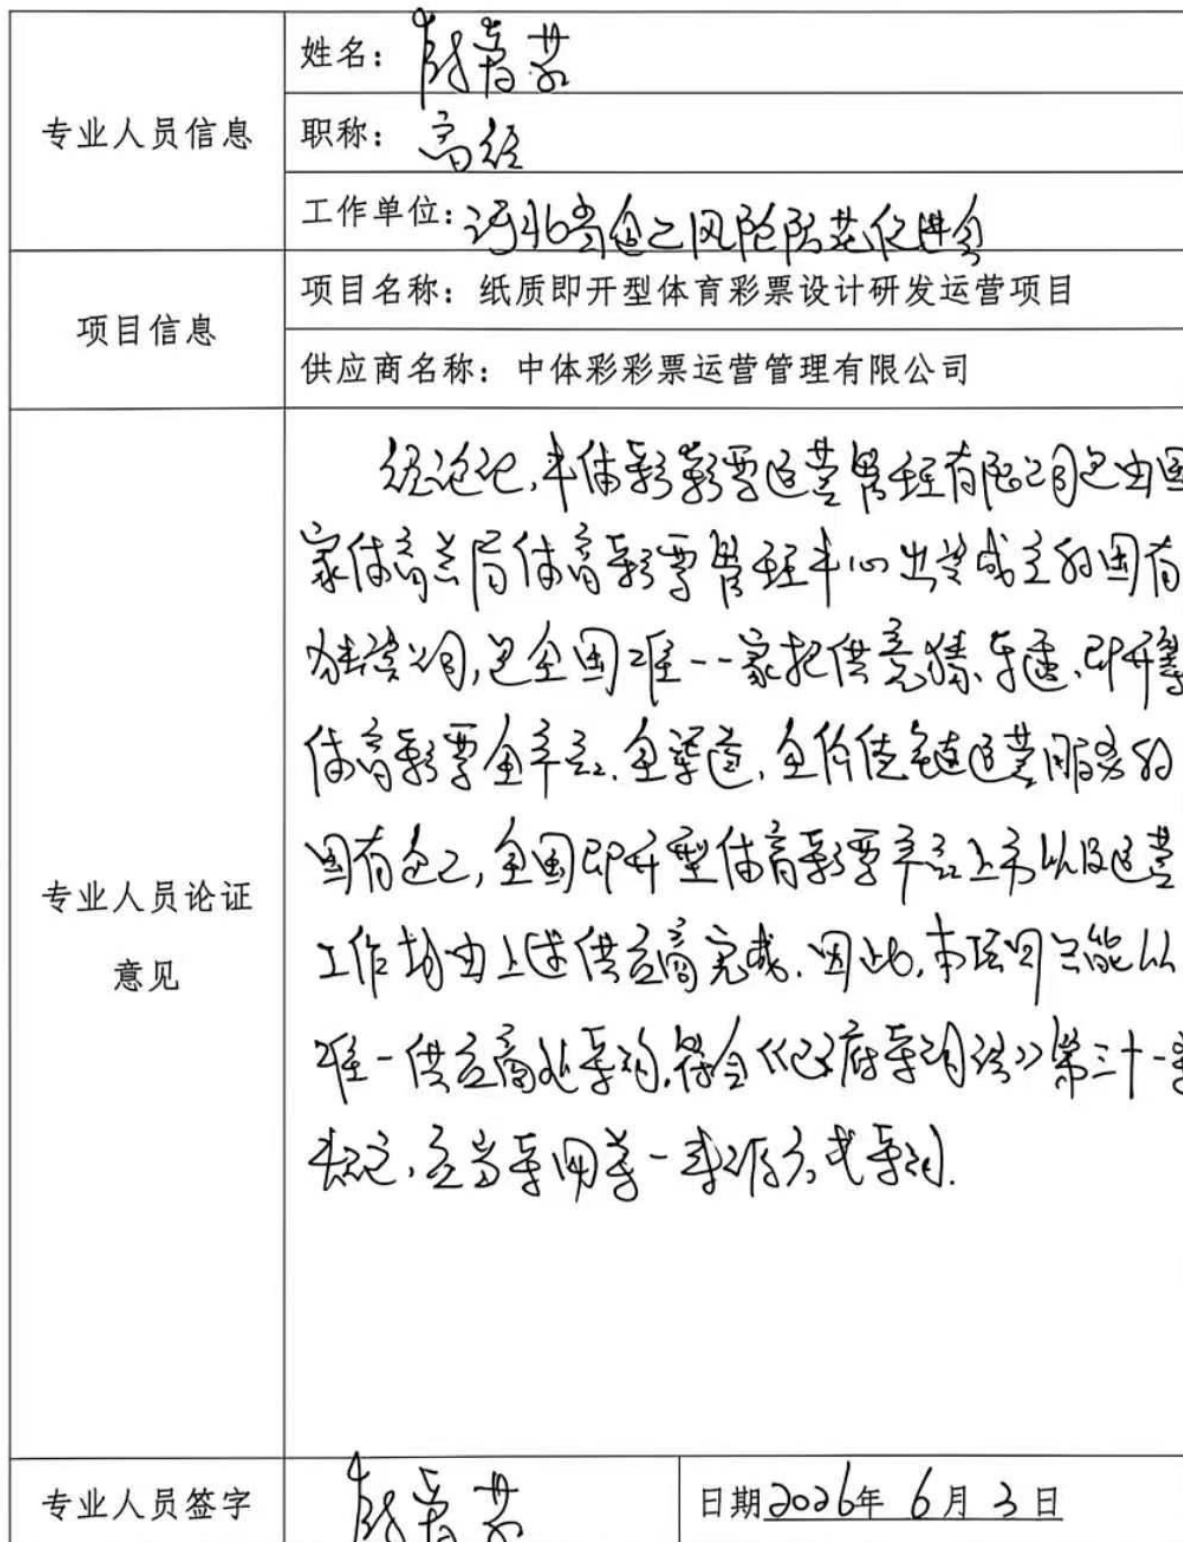 专业人员信息
姓名：
职称：高经
工作单位：河北省企业风险防范促进会
项目信息
项目名称：纸质即开型体育彩票设计研发运营项目
供应商名称：中体彩彩票运营管理有限公司
专业人员论证
意见
经论证，中体彩彩票运营管理有限公司是由国
家体育总局体育彩票管理中心出资成立的国有
独资公司，是全国唯一一家提供竞猜、乐透、即开等
体育彩票全产品、全渠道、全价值链运营服务的
国有企业，全国即开型体育彩票产品上市以及运营
工作均由上述供应商完成。因此，本项目只能从
唯一供应商处采购，符合《政府采购法》第三十一条
规定，应当采用单一来源方式采购。
专业人员签字
日期2026年 6月 3日